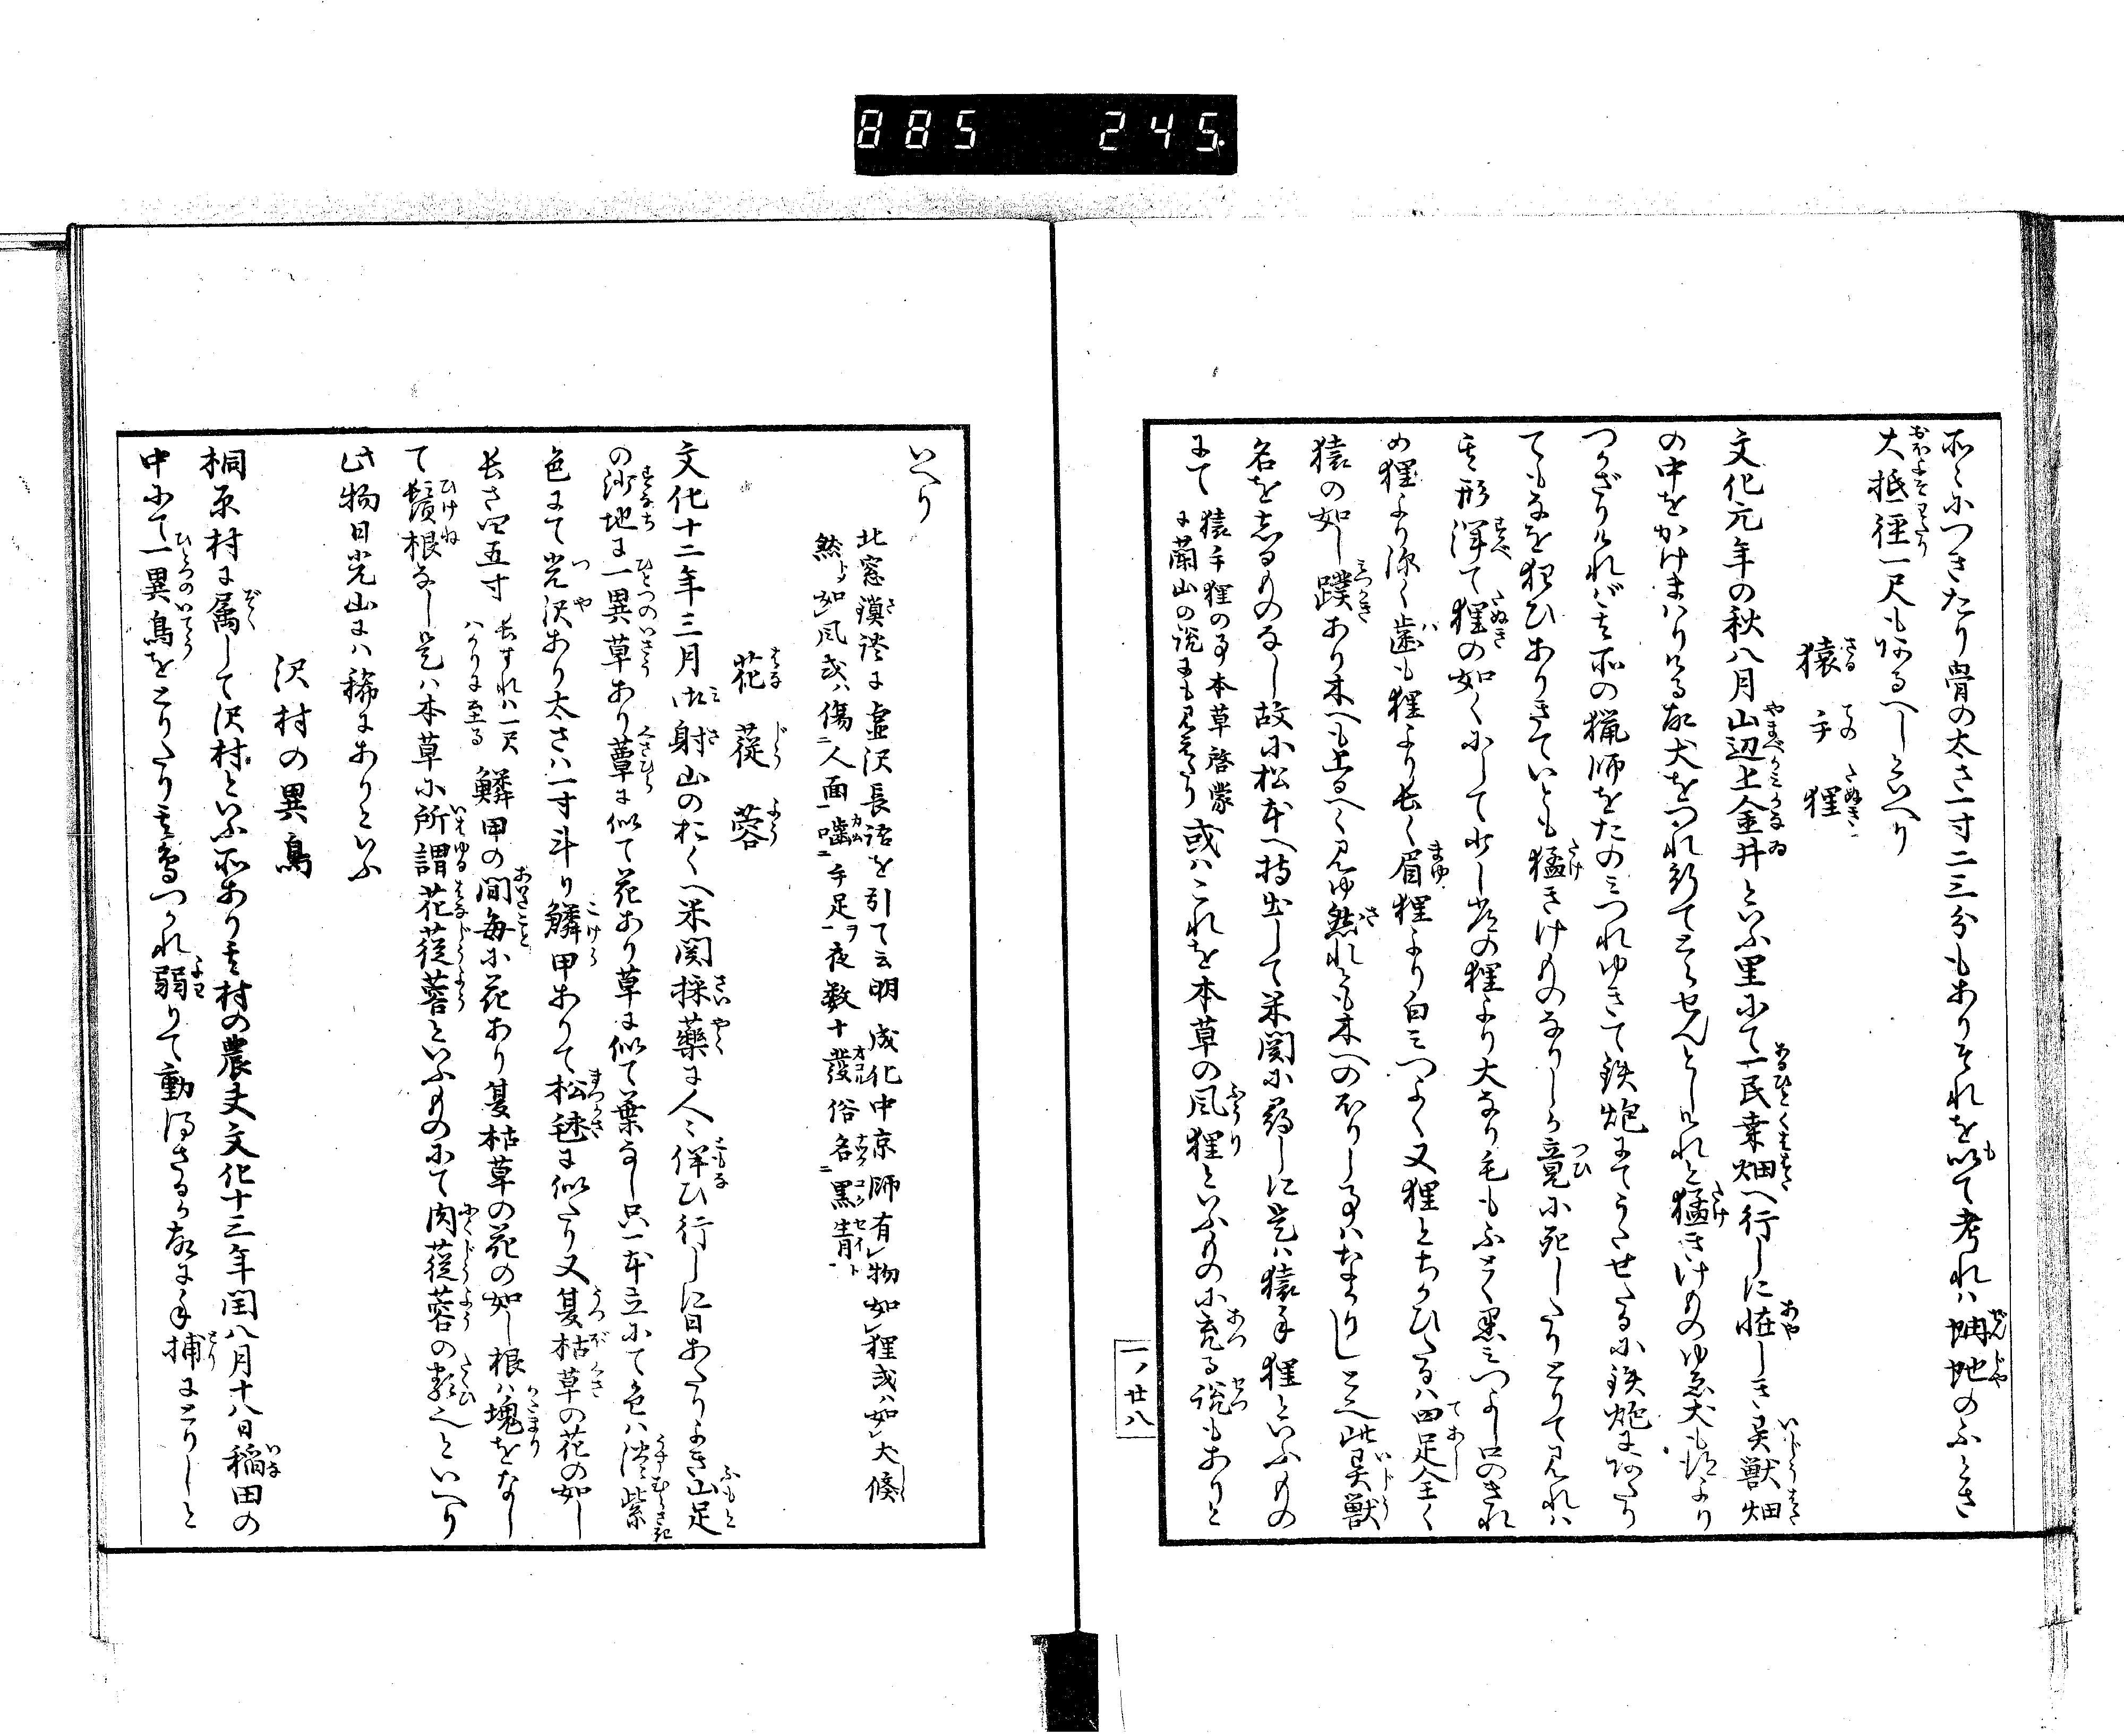 885 245
所々につきたり骨の太さ一寸二三分もありそれを以て考れハ蚺蛇のふとさ
大抵径一尺もあるへしといへり
猿手狸
文化元年の秋八月山辺上金井といふ里にて一民桒畑へ行しに怪しき異獣畑
の中をかけまハりける故犬をつれ行てとらせんとしけれと猛きけものゆゑ犬も
つかざりけれバ其所の猟師をたのミつれゆきて鉄炮にてうたせたるに鉄炮にあたり
てもなを狂ひありきていとも猛きけものなりしか竟に死したりとりて見れハ
其形渾て狸の如くにして少し常の狸より大なり毛もふとく黒ミつよし口のきれ
め狸より深く歯も狸より長く眉狸より白ミつよく又狸とちかひたるハ四足全く
猿の如し蹼あり木へも上るへく見ゆ然れとも木へのほりし事ハなかりしとそ此異獣
名をしるものなし故に松本へ持出して米関に尋しに是ハ猿手狸といふもの
にて
猿手狸の事本草啓蒙
に蘭山の説にも見えたり
或ハこれを本草の風狸といふものに充る説もありと
一ノ廿八
いへり
北窓瑣談に虚沢長語を引て云明成化中京師有物如狸或ハ如犬倏
然如風或ハ傷人面噛手足一夜数十發俗名黒青
花蓯蓉
文化十二年三月 射山の おくへ米関採薬に人々伴ひ行しに日あたりよき山足
の沙地に一異草あり蕈に似て花あり草に似て葉なし只一本立にて色ハ淡紫
色にて光沢あり太さハ一寸斗り鱗甲ありて松毬に似たり又夏枯草の花の如し
長さ四五寸
長すれハ一尺
ハかりに至る
鱗甲の間毎に花あり夏枯草の花の如し根ハ塊をなし
て鬚根なし是ハ本草に所謂花蓯蓉といふものにて肉蓯蓉の類也といへり
此物日光山にハ稀にありといふ
沢村の異鳥
桐原村に属して沢村といふ所あり其村の農夫文化十三年閏八月十八日稲田の
中にて一異鳥をとりたり其鳥つかれ弱りて動得さるか故に手捕にとりしと